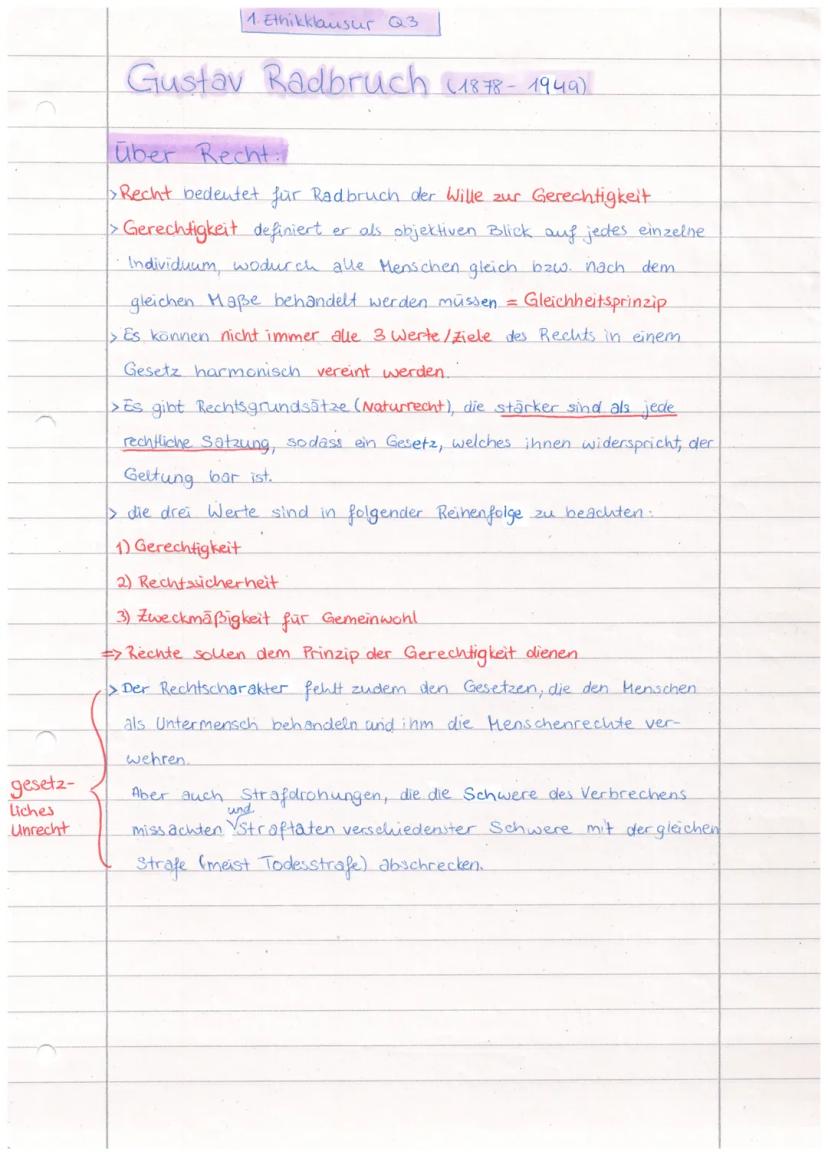 1. Ethikklausur Q3
Gustav Radbruch (1878 - 1949)
Über Recht:
> Recht bedeutet für Radbruch der Wille zur Gerechtigkeit
> Gerechtigkeit definiert er als objektiven Blick auf jedes einzelne
Individuum, wodurch alle Menschen gleich bzw. nach dem
gleichen Maße behandelt werden müssen = Gleichheitsprinzip
> Es können nicht immer alle 3 Werte/Ziele des Rechts in einem
Gesetz harmonisch vereint werden.
> Es gibt Rechtsgrundsätze (Naturrecht), die stärker sind als jede
rechtliche Satzung, sodass ein Gesetz, welches ihnen widerspricht, der
Geltung bar ist.
> die drei Werte sind in folgender Reihenfolge zu beachten:
1) Gerechtigkeit
2) Rechtssicherheit
3) Zweckmäßigkeit für Gemeinwohl
=> Rechte sollen dem Prinzip der Gerechtigkeit dienen
> Der Rechtscharakter fehlt zudem den Gesetzen, die den Menschen
als Untermensch behandeln und ihm die Menschenrechte ver-
wehren.
gesetz-
liches
Unrecht
Aber auch Strafdrohungen, die die Schwere des Verbrechens
missachten und Straftaten verschiedenster Schwere mit der gleichen
Strafe (meist Todesstrafe) abschrecken.